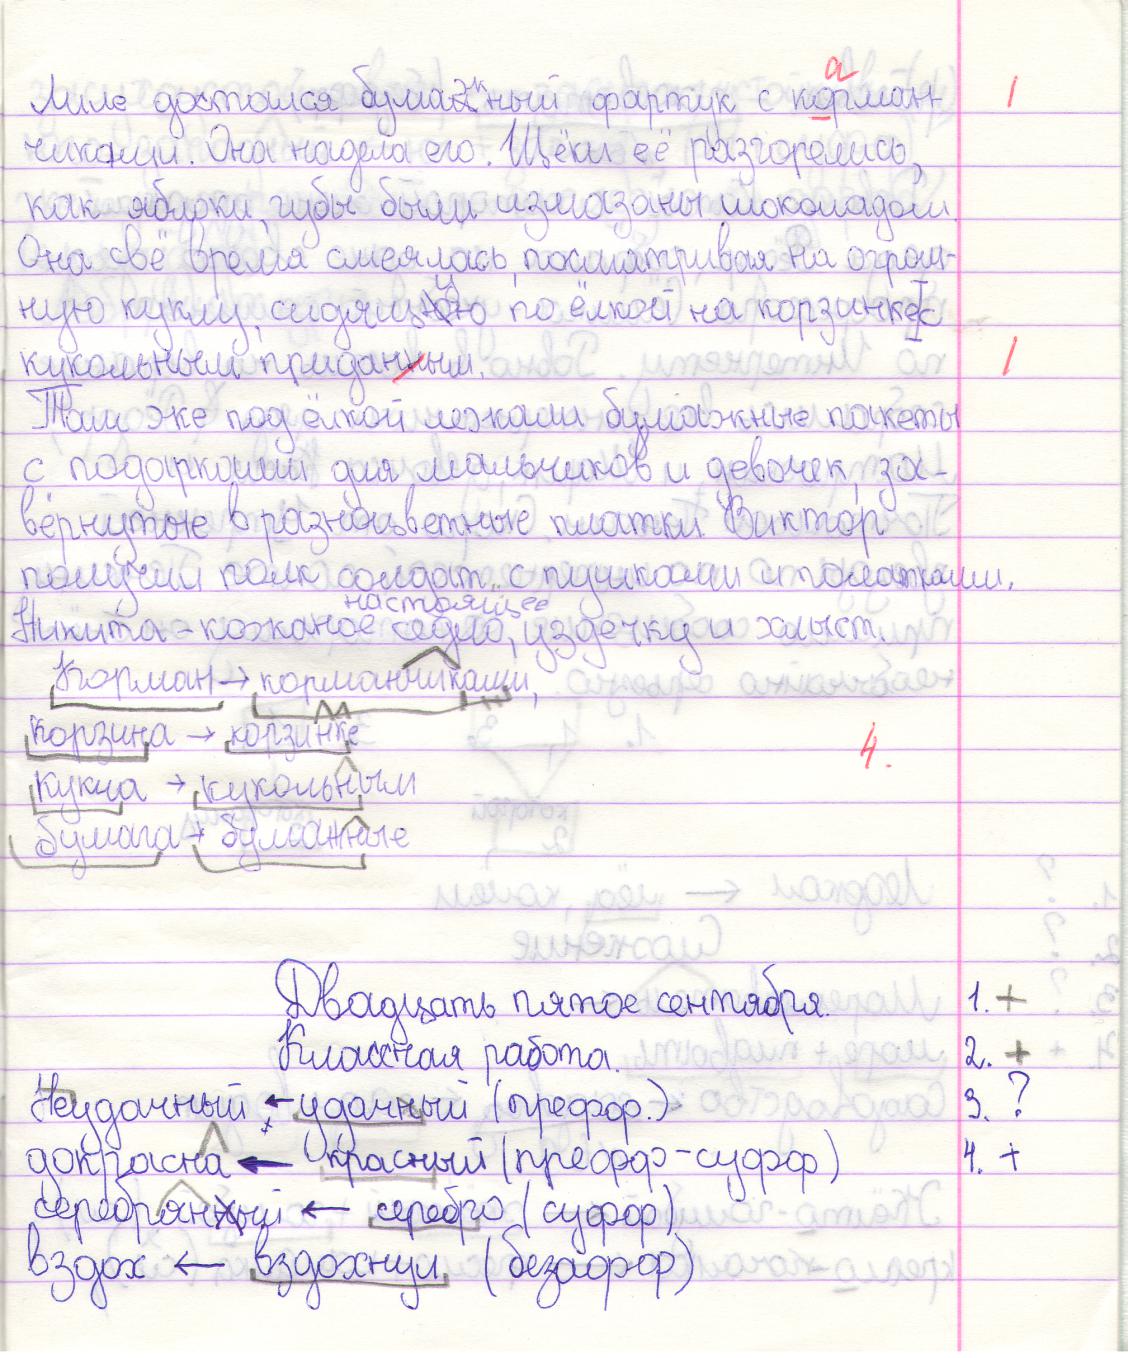 а
Лиле достался бумажный фартук с корман- 1
чиками. Она надела его. Щёки её разгорелись,
как яблоки, губы были измазаны шоколадом.
Она всё время смеялась, посматривая на огром-
ную куклу, сидящую по ёлкой на корзинке с
кукольным приданным. 1
Там же под ёлкой лежали бумажные пакеты
с подарками для мальчиков и девочек, за-
вёрнутые в разноцветные платки. Виктор
получил полк солдат с пушками и палатками.
настоящее
Никита - кожаное седло, уздечку и хлыст.
Корман → корманчиками,
корзина → корзинке 4.
кукла → кукольным
бумага → бумажные
Двадцать пятое сентября. 1. +
Классная работа. 2. +
Неудачный ← удачный (префф.) 3. ?
докрасна ← красный (префф-суфф) 4. +
серебряный ← серебро (суфф)
вздох ← вздохнул (безафф)